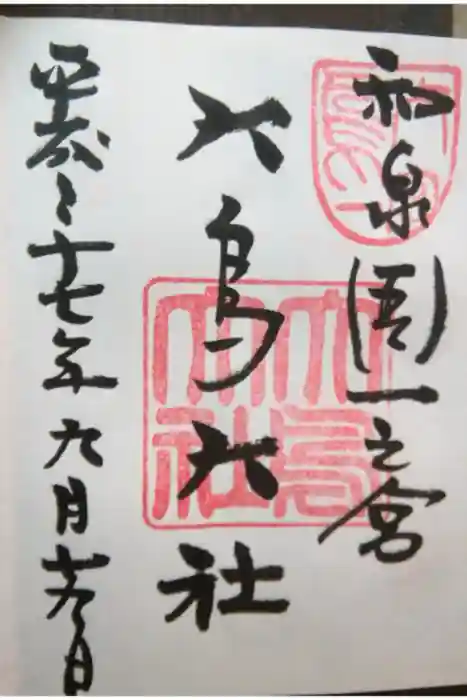 和泉國一之宮
大鳥大社
平成二十七年九月日
大鳥
大社